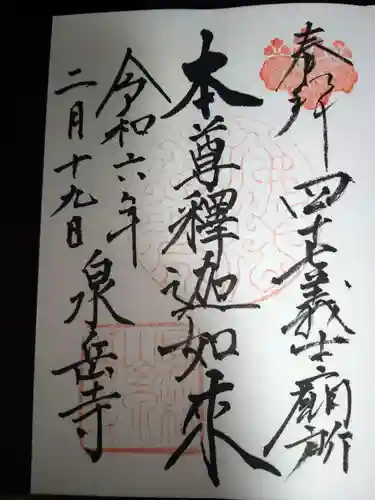 奉拜
四十七義士廟所
本尊釋迦如來
令和六年
二月十九日
泉岳寺